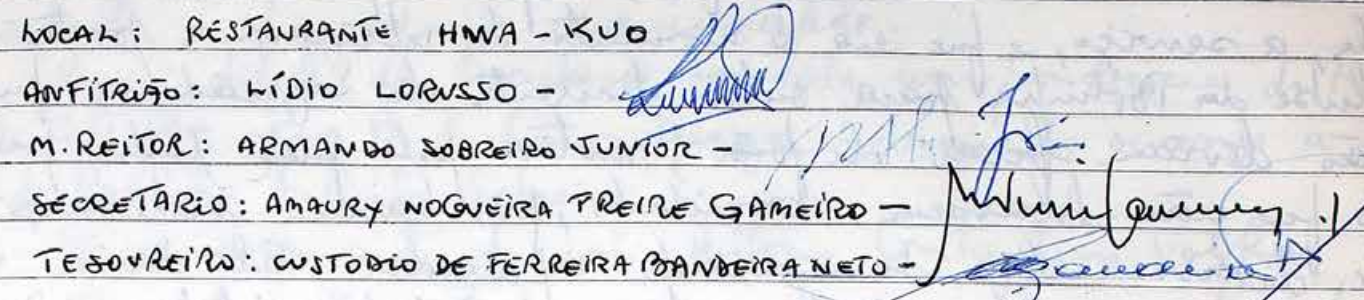 LOCAL: RESTAURANTE HWA-KUO
ANFITRIÃO: LÍDIO LORUSSO -
M. REITOR: ARMANDO SOBREIRO JUNIOR -
SECRETARIO: AMAURY NOGUEIRA FREIRE GAMEIRO -
TESOUREIRO: CUSTODIO DE FERREIRA BANDEIRA NETO -